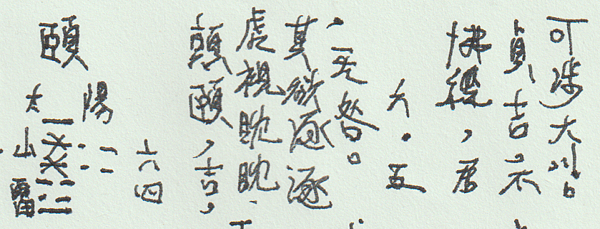 頤
太陽
山雷
六四
顛頤,吉,
虎視眈眈
其欲逐逐
,无咎。
六.五
拂經,居
貞吉不
可涉大川。